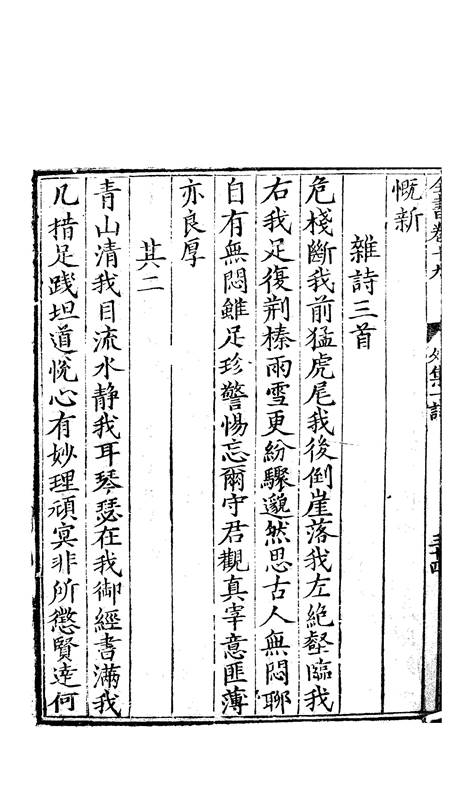 全書卷十九 外集一 詩 三十四
慨新
雜詩三首
危棧斷我前猛虎尾我後倒崖落我左絕壑臨我
右我足復荆榛雨雪更紛驟邈然思古人無悶聊
自有無悶雖足珍警惕忘爾守君觀真宰意匪薄
亦良厚
其二
青山清我目流水靜我耳琴瑟在我御經書滿我
几措足踐坦道悅心有妙理頑冥非所懲賢達何